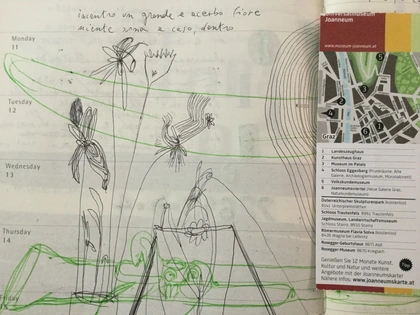 incontro un grande e acerbo fiore
niente a caso, dentro
Monday
11
Tuesday
12
Wednesday
13
Thursday
14
Friday
Universalmuseum
Joanneum
www.museum-joanneum.at
5
2
3
4
1
6
7
Graz
1 Landeszeughaus
2 Kunsthaus Graz
3 Museum im Palais
4 Schloss Eggenberg (Prunkräume, Alte
Galerie, Archäologiemuseum, Münzkabinett)
5 Volkskundemuseum
6 Joanneumsviertel (Neue Galerie Graz,
Naturkundemuseum)
Österreichischer Skulpturenpark
Schloss Trautenfels
Jagdmuseum, Landwirtschaftsmuseum
Schloss Stainz, 8510 Stainz
Römermuseum Flavia Solva
8435 Wagna bei Leibnitz
Rosegger-Geburtshaus
Rosegger-Museum
Genießen Sie 12 Monate Kunst,
Kultur und Natur und weitere
Angebote mit der Joanneumskarte!
Nähere Infos: www.joanneumskarte.at